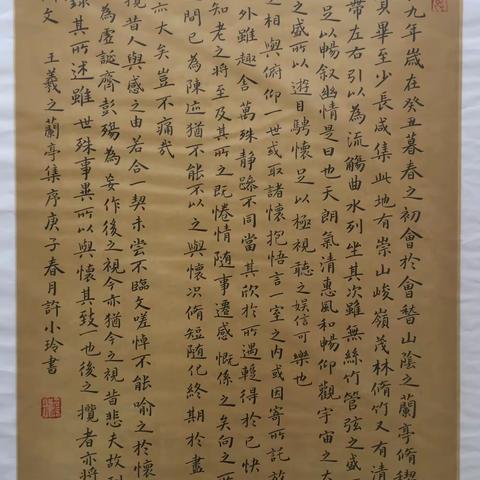 九年歲在癸丑暮春之初會於會稽山陰之蘭亭脩稧
畢至少長咸集此地有崇山峻嶺茂林脩竹又有清
帶左右引以為流觴曲水列坐其次雖無絲竹管弦之盛一
足以暢叙幽情是日也天朗氣清惠風和暢仰觀宇宙之大
之盛所以遊目騁懷足以極視聽之娛信可樂也
之相與俯仰一世或取諸懷抱悟言一室之內或因寄所託放
外雖趣舍萬殊靜躁不同當其欣於所遇蹔得於己快
知老之將至及其所之既惓情随事遷感慨係之矣向之所
間已為陳迹猶不能不以之興懷況脩短随化終期於盡
大矣豈不痛哉
攬昔人興感之由若合一契未嘗不臨文嗟悼不能喻之於懷
為虛誕齊彭殤為妄作後之視今亦猶今之視昔悲夫故列
錄其所述雖世殊事異所以興懷其致一也後之攬者亦將
文 王羲之蘭亭集序庚子春月許小玲書